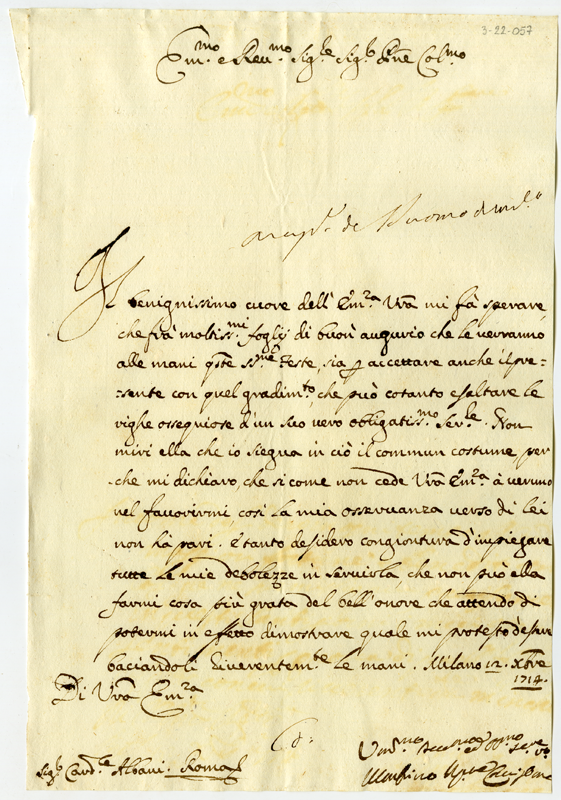 3-22-057
Em.mo e Reu.mo Sig.re Sig.r Pne Col.mo
Il benignissimo cuore dell' Em.za Vra mi fà sperare,
che frà moltiss.mi foglij di buon' augurio che le verranno
alle mani qste ss.me Feste, sia p accettare anche il pre-
sente con quel gradim.to, che può cotanto esaltare le
righe ossequiose d'un suo vero obbligatiss.mo Ser.re. Non
miri ella che io siegua in ciò il commun costume, per
che mi dichiaro, che si come non cede Vra Em.za à veruno
nel fauorirmi, così la mia osseruanza verso di lei
non hà pari. E tanto desidero congiontura d'impiegare
tutte le mie debolezze in seruirla, che non può ella
farmi cosa più grata del bell' onore che attendo di
potermi in effetto dimostrare quale mi protesto d'essere
baciandoli riuerentem.te le mani. Milano 12. Xbre
1714.
Di Vra Em.za
Sig.r Card.le Albani. Roma